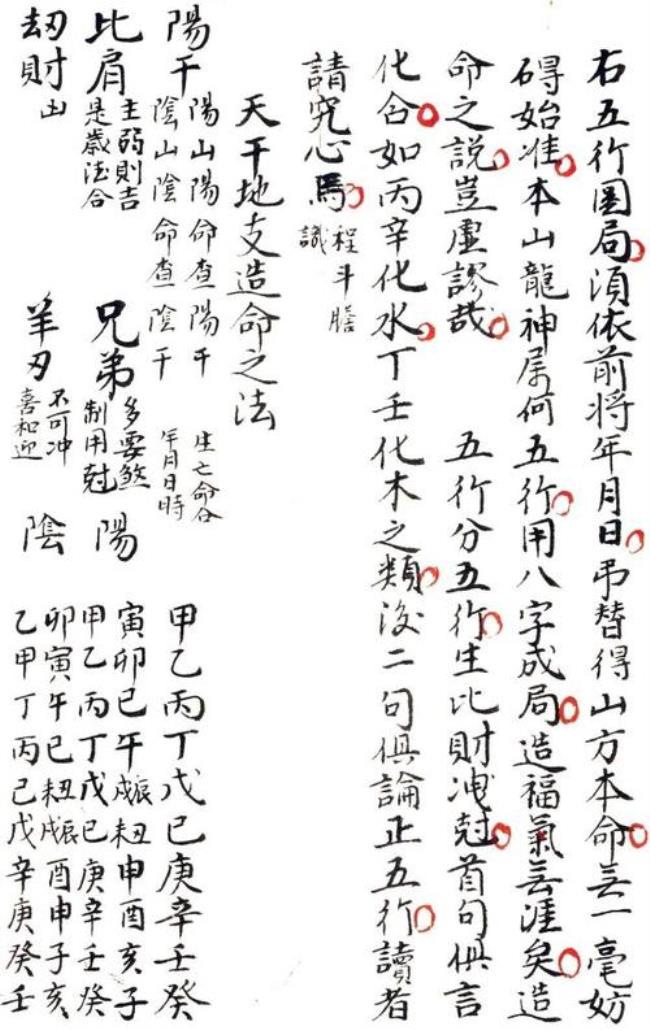 右五行圖局湏依前将年月日弔替得山方本命無一毫妨
碍始准本山龍神属何五行用八字成局造福氣無涯矣造
命之説豈虛謬哉 五行分五行生比財洩尅首句俱言
化合如丙辛化水丁壬化木之類後二句俱論正五行讀者
請究心焉 程斗膳
識
天干地支造命之法
陽干 陽山陽命查陽干 生亡命合
陰山陰命查陰干 年月日時
甲乙丙丁戊己庚辛壬癸
比肩 主弱則吉
是歲法合
兄弟 多要煞
制用尅
陽 寅卯巳午辰戌丑未申酉亥子
甲乙丙丁戊己庚辛壬癸
刼財 凶
羊刃 不可冲
喜和迎
陰 卯寅午巳丑未辰戌酉申子亥
乙甲丁丙己戊辛庚癸壬